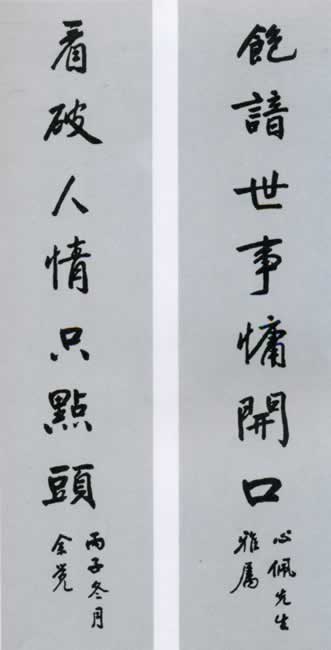 飽諳世事慵開口
心佩先生
雅属
看破人情只點頭
丙子冬月
余覺